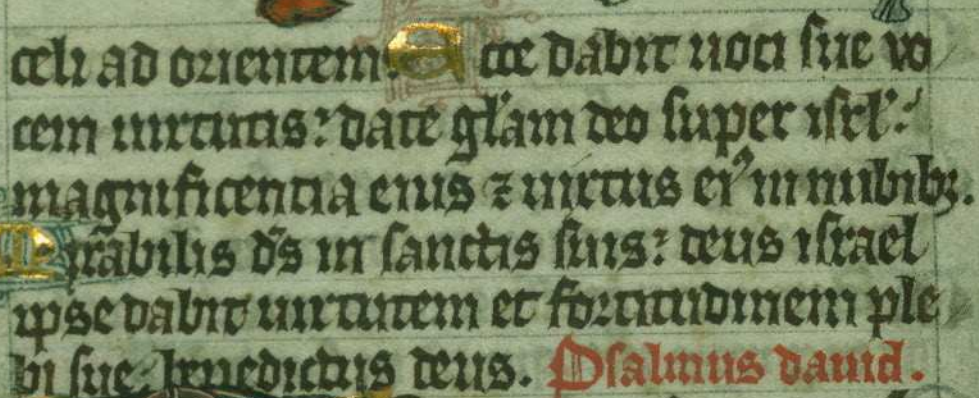 celi ad orientem. Ecce dabit uoci sue uo
cem uirtutis: date gl̃am deo super isrl̃:
magnificentia eius ⁊ uirtus eiꝰ in nubibꝫ.
Mirabilis d̃s in sanctis suis: deus israel
ipse dabit uirtutem et fortitudinem ple
bi sue: benedictus deus. Psalmus dauid.